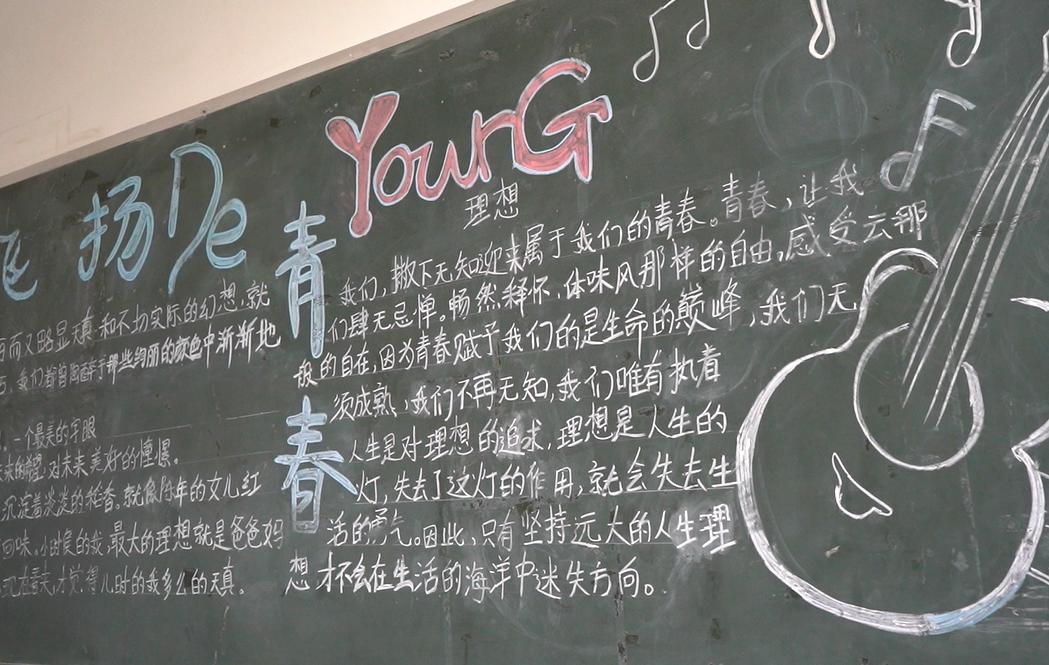 飞扬De YounG
青春
理想
我们,撇下无知迎来属于我们的青春。青春,让我
们肆无忌惮。畅然释怀,体味风那样的自由,感受云那
般的自在,因为青春赋予我们的是生命的巅峰,我们无
须成熟,我们不再无知,我们唯有执着
人生是对理想的追求,理想是人生的
灯,失去了这灯的作用,就会失去生
活的勇气。因此,只有坚持远大的人生理
想才不会在生活的海洋中迷失方向。
而又略显天真和不切实际的幻想,就
我们都曾陶醉于那些绚丽的颜色中渐渐地
一个最美的字眼
对未来美好的憧憬。
沉淀着淡淡的稚香。就像陈年的女儿红
回味。小时候的我,最大的理想就是爸爸妈
现在看来,才觉得儿时的我多么的天真。